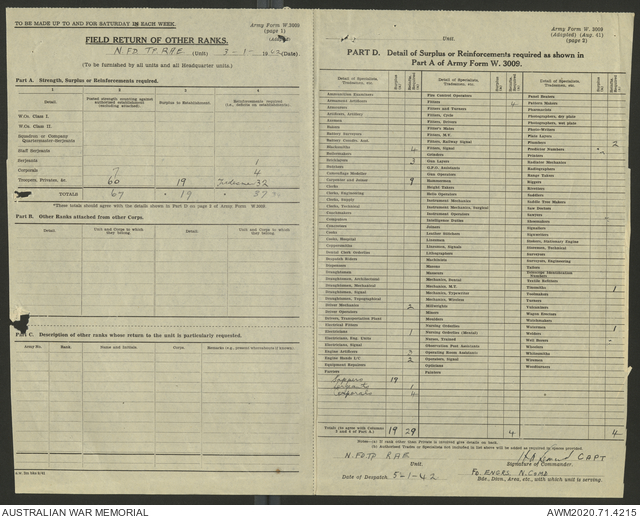 TO BE MADE UP TO AND FOR SATURDAY IN EACH WEEK.
Army Form W. 3009
(page 1)
FIELD RETURN OF OTHER RANKS.
N. FD. TP. RAE (Unit) 3-1-1942 (Date).
(To be furnished by all units and all Headquarter units.)
Part A. Strength, Surplus or Reinforcements required.
1 2 3 4
Detail. Posted strength counting against authorised establishment (excluding attached). Surplus to Establishment. Reinforcements required (i.e., deficits on establishment).
W.Os. Class I.
W.Os. Class II.
Squadron or Company Quartermaster-Serjeants
Staff Serjeants
Serjeants 1
Corporals 7 4
Troopers, Privates, &c. 60 19 32
TOTALS 67 19
*These totals should agree with the details shown in Part D on page 2 of Army Form W. 3009
Part B. Other Ranks attached from other Corps.
Detail. Unit and Corps to which they belong. Detail. Unit and Corps to which they belong.
Part C. Description of other ranks whose return to the unit is particularly requested.
Army No. Rank. Name and Initials. Corps. Remarks (e.g., present whereabouts if known).
Army Form W. 3009
(Adopted) (Aug. 41)
(page 2)
Unit.
PART D. Detail of Surplus or Reinforcements required as shown in
Part A of Army Form W. 3009.
Detail of Specialists, Tradesmen, etc. Surplus (a) Reinforcements Required (a)
Ammunition Examiners
Armament Artificers
Armourers
Artificers, Artillery
Axemen
Bakers
Battery Surveyors
Blacksmiths 4
Boilermakers
Bricklayers 3
Butchers
Camouflage Modeller
Carpenter and Joiner 9
Clerks
Clerks, Engineering
Clerks, Supply
Clerks, Technical
Coachmakers
Compositor
Concretors
Cooks
Cooks, Hospital
Coppersmiths
Dental Clerk Orderlies
Despatch Riders
Dispensers
Draughtsmen
Draughtsmen, Architectural
Draughtsmen, Mechanical
Draughtsmen, Signal
Draughtsmen, Topographical
Driver Mechanics 2
Driver Operators
Drivers, Transportation Plant
Electrical Fitters
Electricians 1
Electricians, Signals
Engine Artificers 3
Engine Hands I.C. 2
Equipment Repairers
Farriers
Sappers 19
Serjeants 1
Corporals 4
Fire Control Operators
Fitters 4
Fitters and Turners
Fitters, Cycle
Fitters, Gun
Fitters, M.V.
Fitters, Railway Signal
Fitters, Signal
Grinders
Gun Layers
G.P.O. Assistants
Gun Operators
Hammermen
Height Takers
Hole Operators
Instrument Mechanics
Instrument Mechanics, Surgical
Instrument Operators
Intelligence Duties
Joiners
Leather Stitchers
Linesmen
Linesmen, Signals
Lithographers
Machinists
Masons
Masseurs
Mechanics, Dental
Mechanics M.T.
Mechanics, Typewriter
Mechanics, Wireless
Millwrights
Miners
Moulders
Nursing Orderlies
Nursing Orderlies (Mental)
Nurses, Trained
Observation Post Assistants
Operating Room Assistants
Operators, Signal
Opticians
Painters
Panel Beaters
Pattern Makers
Pharmacists
Photographers, dry plate
Photographers, wet plate
Photo-Writers
Plate Layers
Plumbers 2
Predictor Numbers
Printers
Radiator Mechanics
Radiographers
Range Takers
Riggers
Riveters
Saddlers
Saddle Tree Makers
Saw Doctors
Sawyers
Shoemakers
Signallers
Signwriters
Stokers, Stationary Engine
Storemen, Technical
Surveyors
Surveyors, Engineering
Tailors
Textile Refitters
Tinsmiths 1
Toolmakers
Turners
Vulcanizers
Wagon Erectors
Watchmakers
Watermen 1
Welders
Well Borers
Wheelers
Whitesmiths
Wiremen
Woodturners
Totals (to agree with Columns 3 and 4 of Part A.) 19 29 4 4
Notes.—(a) If rank other than Private is required give details on back.
(b) Authorised Trades or Specialists not included in list above will be added as required in spaces provided.
N. FD TP RAE CAPT
Unit. Signature of Commander.
Date of Despatch 5-1-42 FD. ENGRS N. COMD
Bde., Divn., Area, etc., with which unit is serving.
AUSTRALIAN WAR MEMORIAL
AWM2020.71.4215